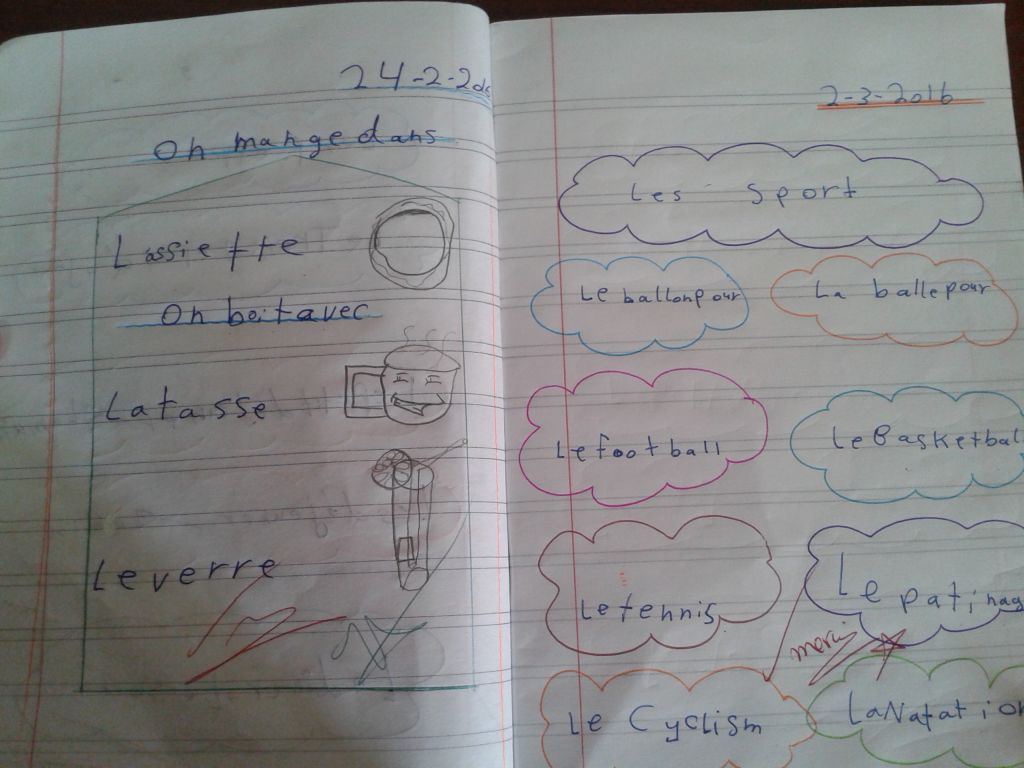 24-2-20
On mange dans
L'assiette
On beit avec
La tasse
Le verre
2-3-2016
Les sport
Le ballon pour
La balle pour
Le football
Le Basketball
Le tennis
Le patinag
merci
Le Cyclism
La Natation